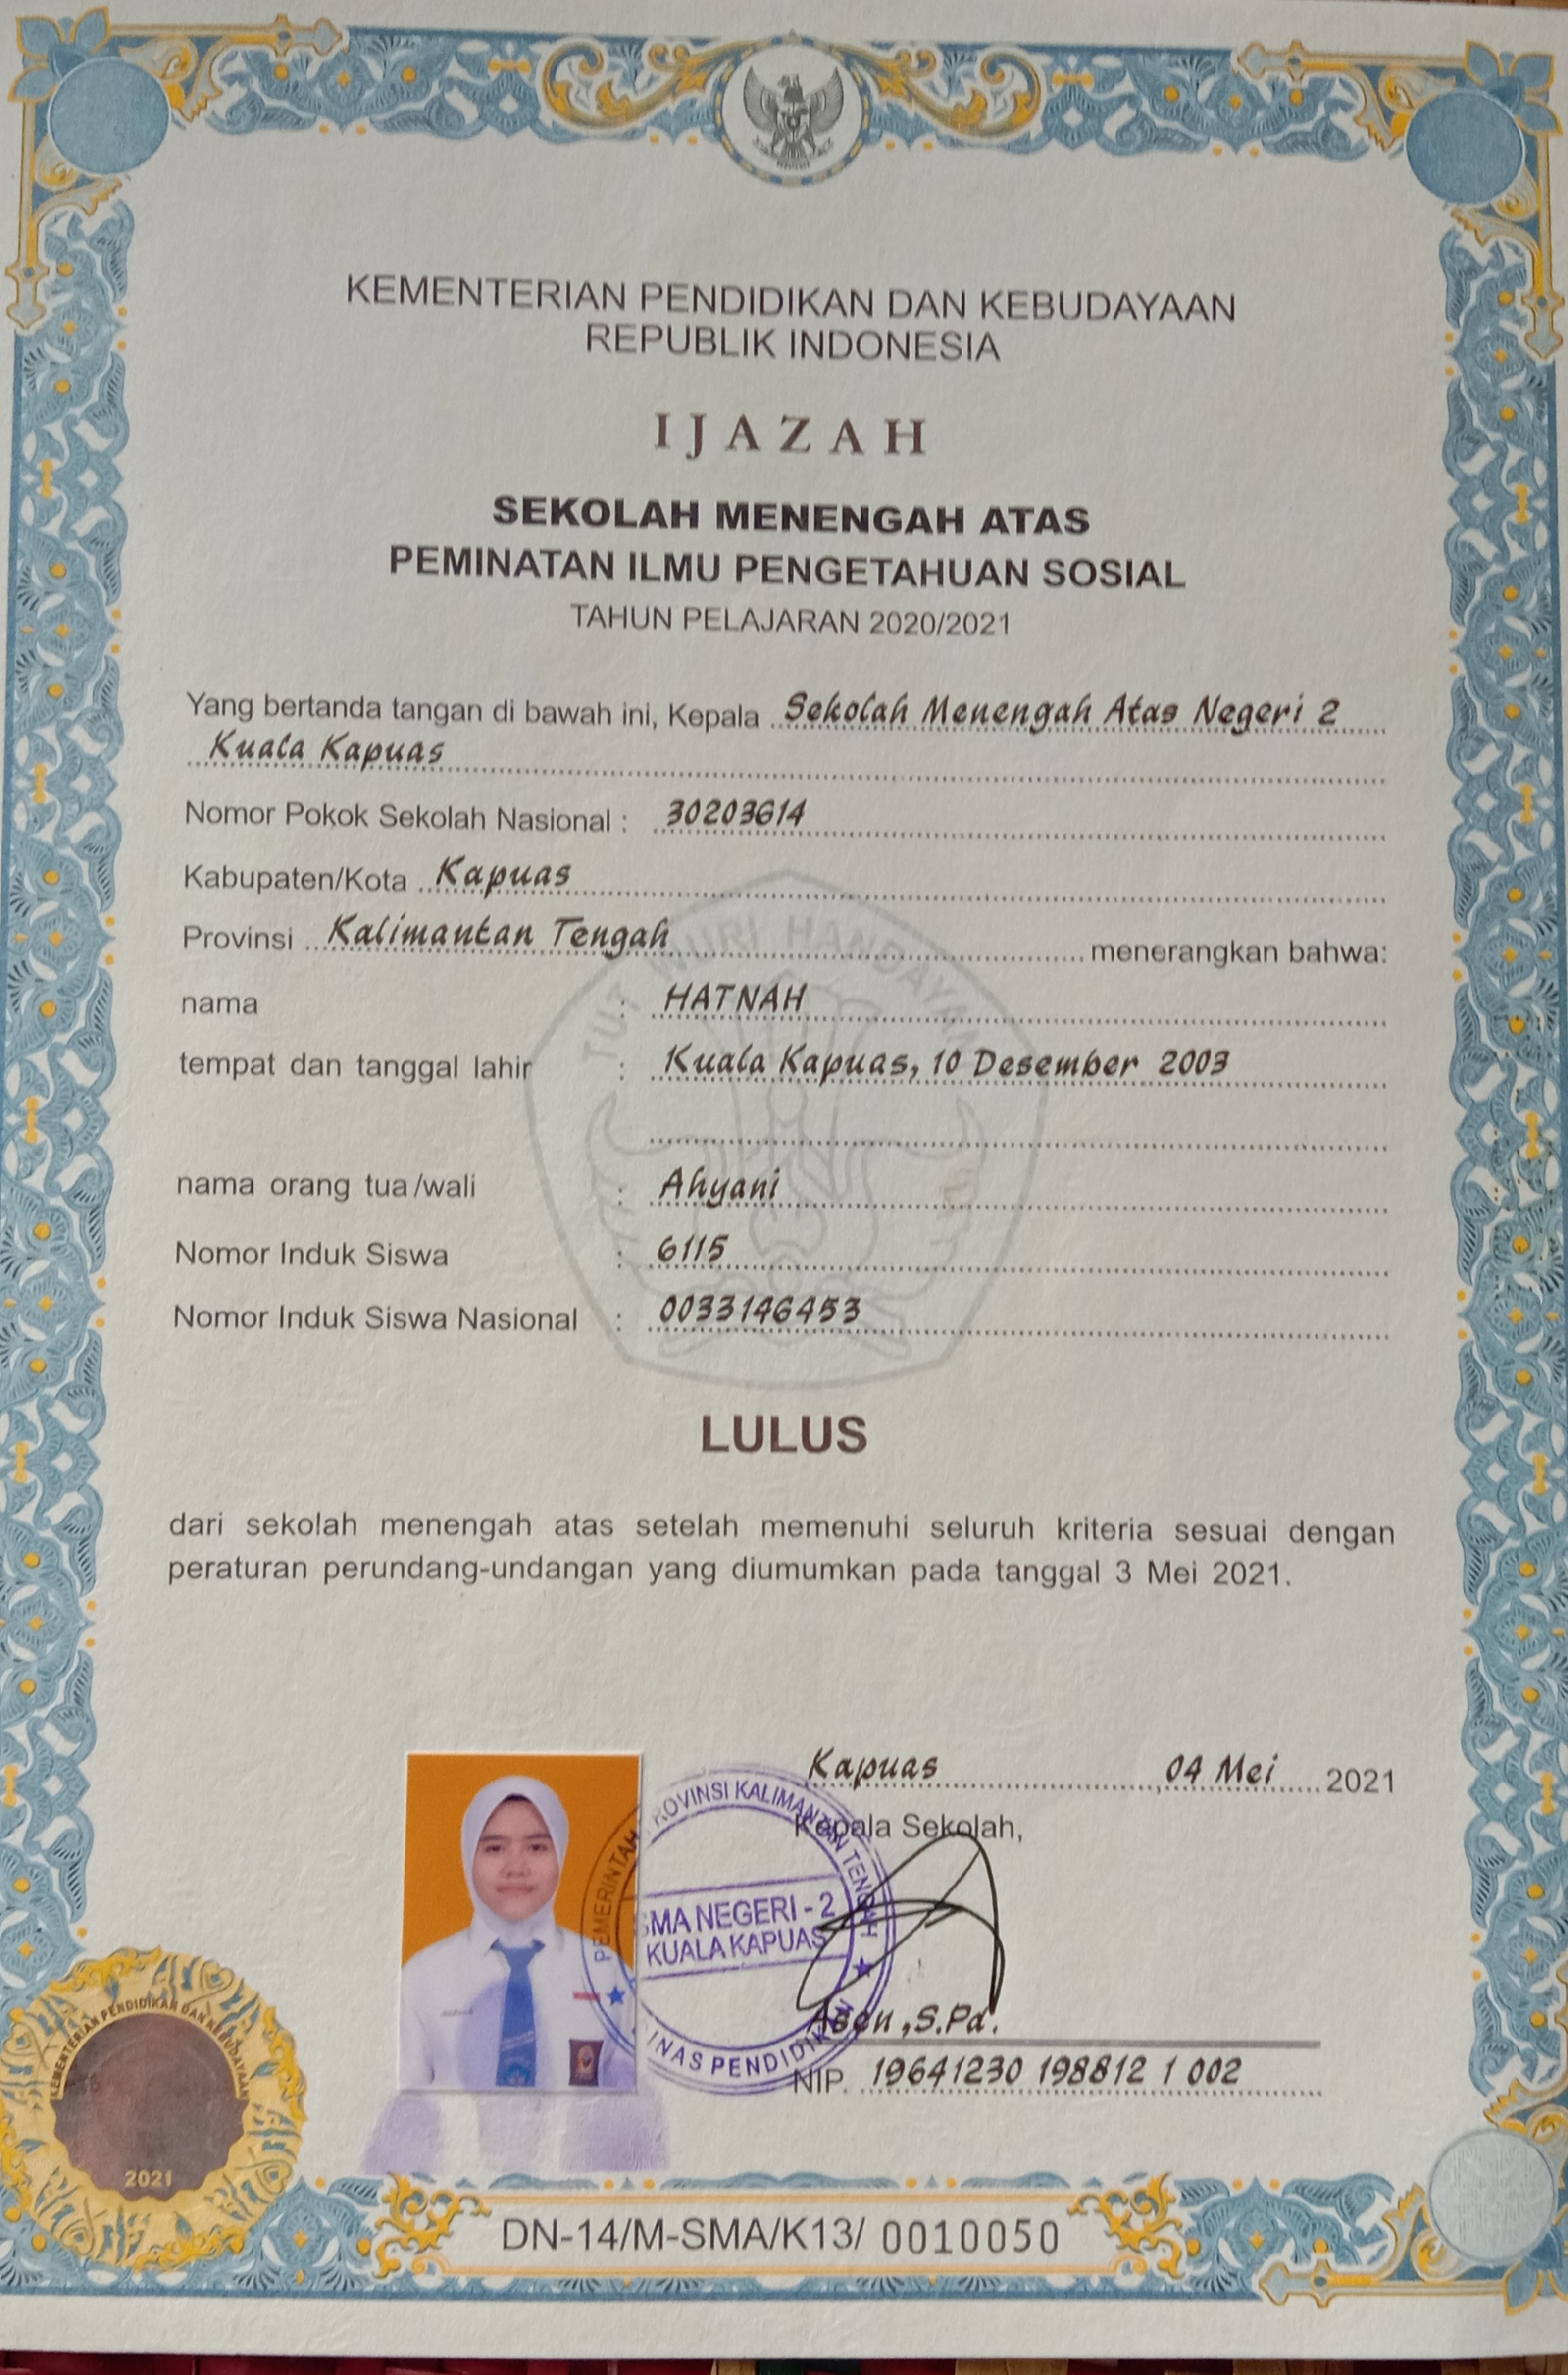 KEMENTERIAN PENDIDIKAN DAN KEBUDAYAAN
REPUBLIK INDONESIA
IJAZAH
SEKOLAH MENENGAH ATAS
PEMINATAN ILMU PENGETAHUAN SOSIAL
TAHUN PELAJARAN 2020/2021
Yang bertanda tangan di bawah ini, Kepala Sekolah Menengah Atas Negeri 2
Kuala Kapuas
Nomor Pokok Sekolah Nasional : 30203614
Kabupaten/Kota Kapuas
Provinsi Kalimantan Tengah menerangkan bahwa:
nama : HATNAH
tempat dan tanggal lahir : Kuala Kapuas, 10 Desember 2003
nama orang tua/wali : Ahyani
Nomor Induk Siswa : 6115
Nomor Induk Siswa Nasional : 0033146453
TUT WURI HANDAYANI
LULUS
dari sekolah menengah atas setelah memenuhi seluruh kriteria sesuai dengan
peraturan perundang-undangan yang diumumkan pada tanggal 3 Mei 2021.
Kapuas, 04 Mei 2021
Kepala Sekolah,
PEMERINTAH PROVINSI KALIMANTAN TENGAH
SMA NEGERI - 2
KUALA KAPUAS
DINAS PENDIDIKAN
Asen, S.Pd.
NIP. 19641230 198812 1 002
KEMENTERIAN PENDIDIKAN DAN KEBUDAYAAN
2021
DN-14/M-SMA/K13/ 0010050